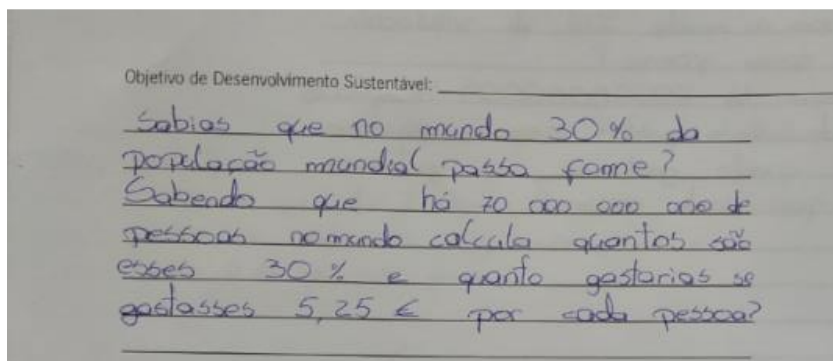 Objetivo de Desenvolvimento Sustentável:
Sabias que no mundo 30% da
população mundial passa fome?
Sabendo que há 70 000 000 000 de
pessoas no mundo calcula quantos são
esses 30% e quanto gastarias se
gastasses 5,25 € por cada pessoa?